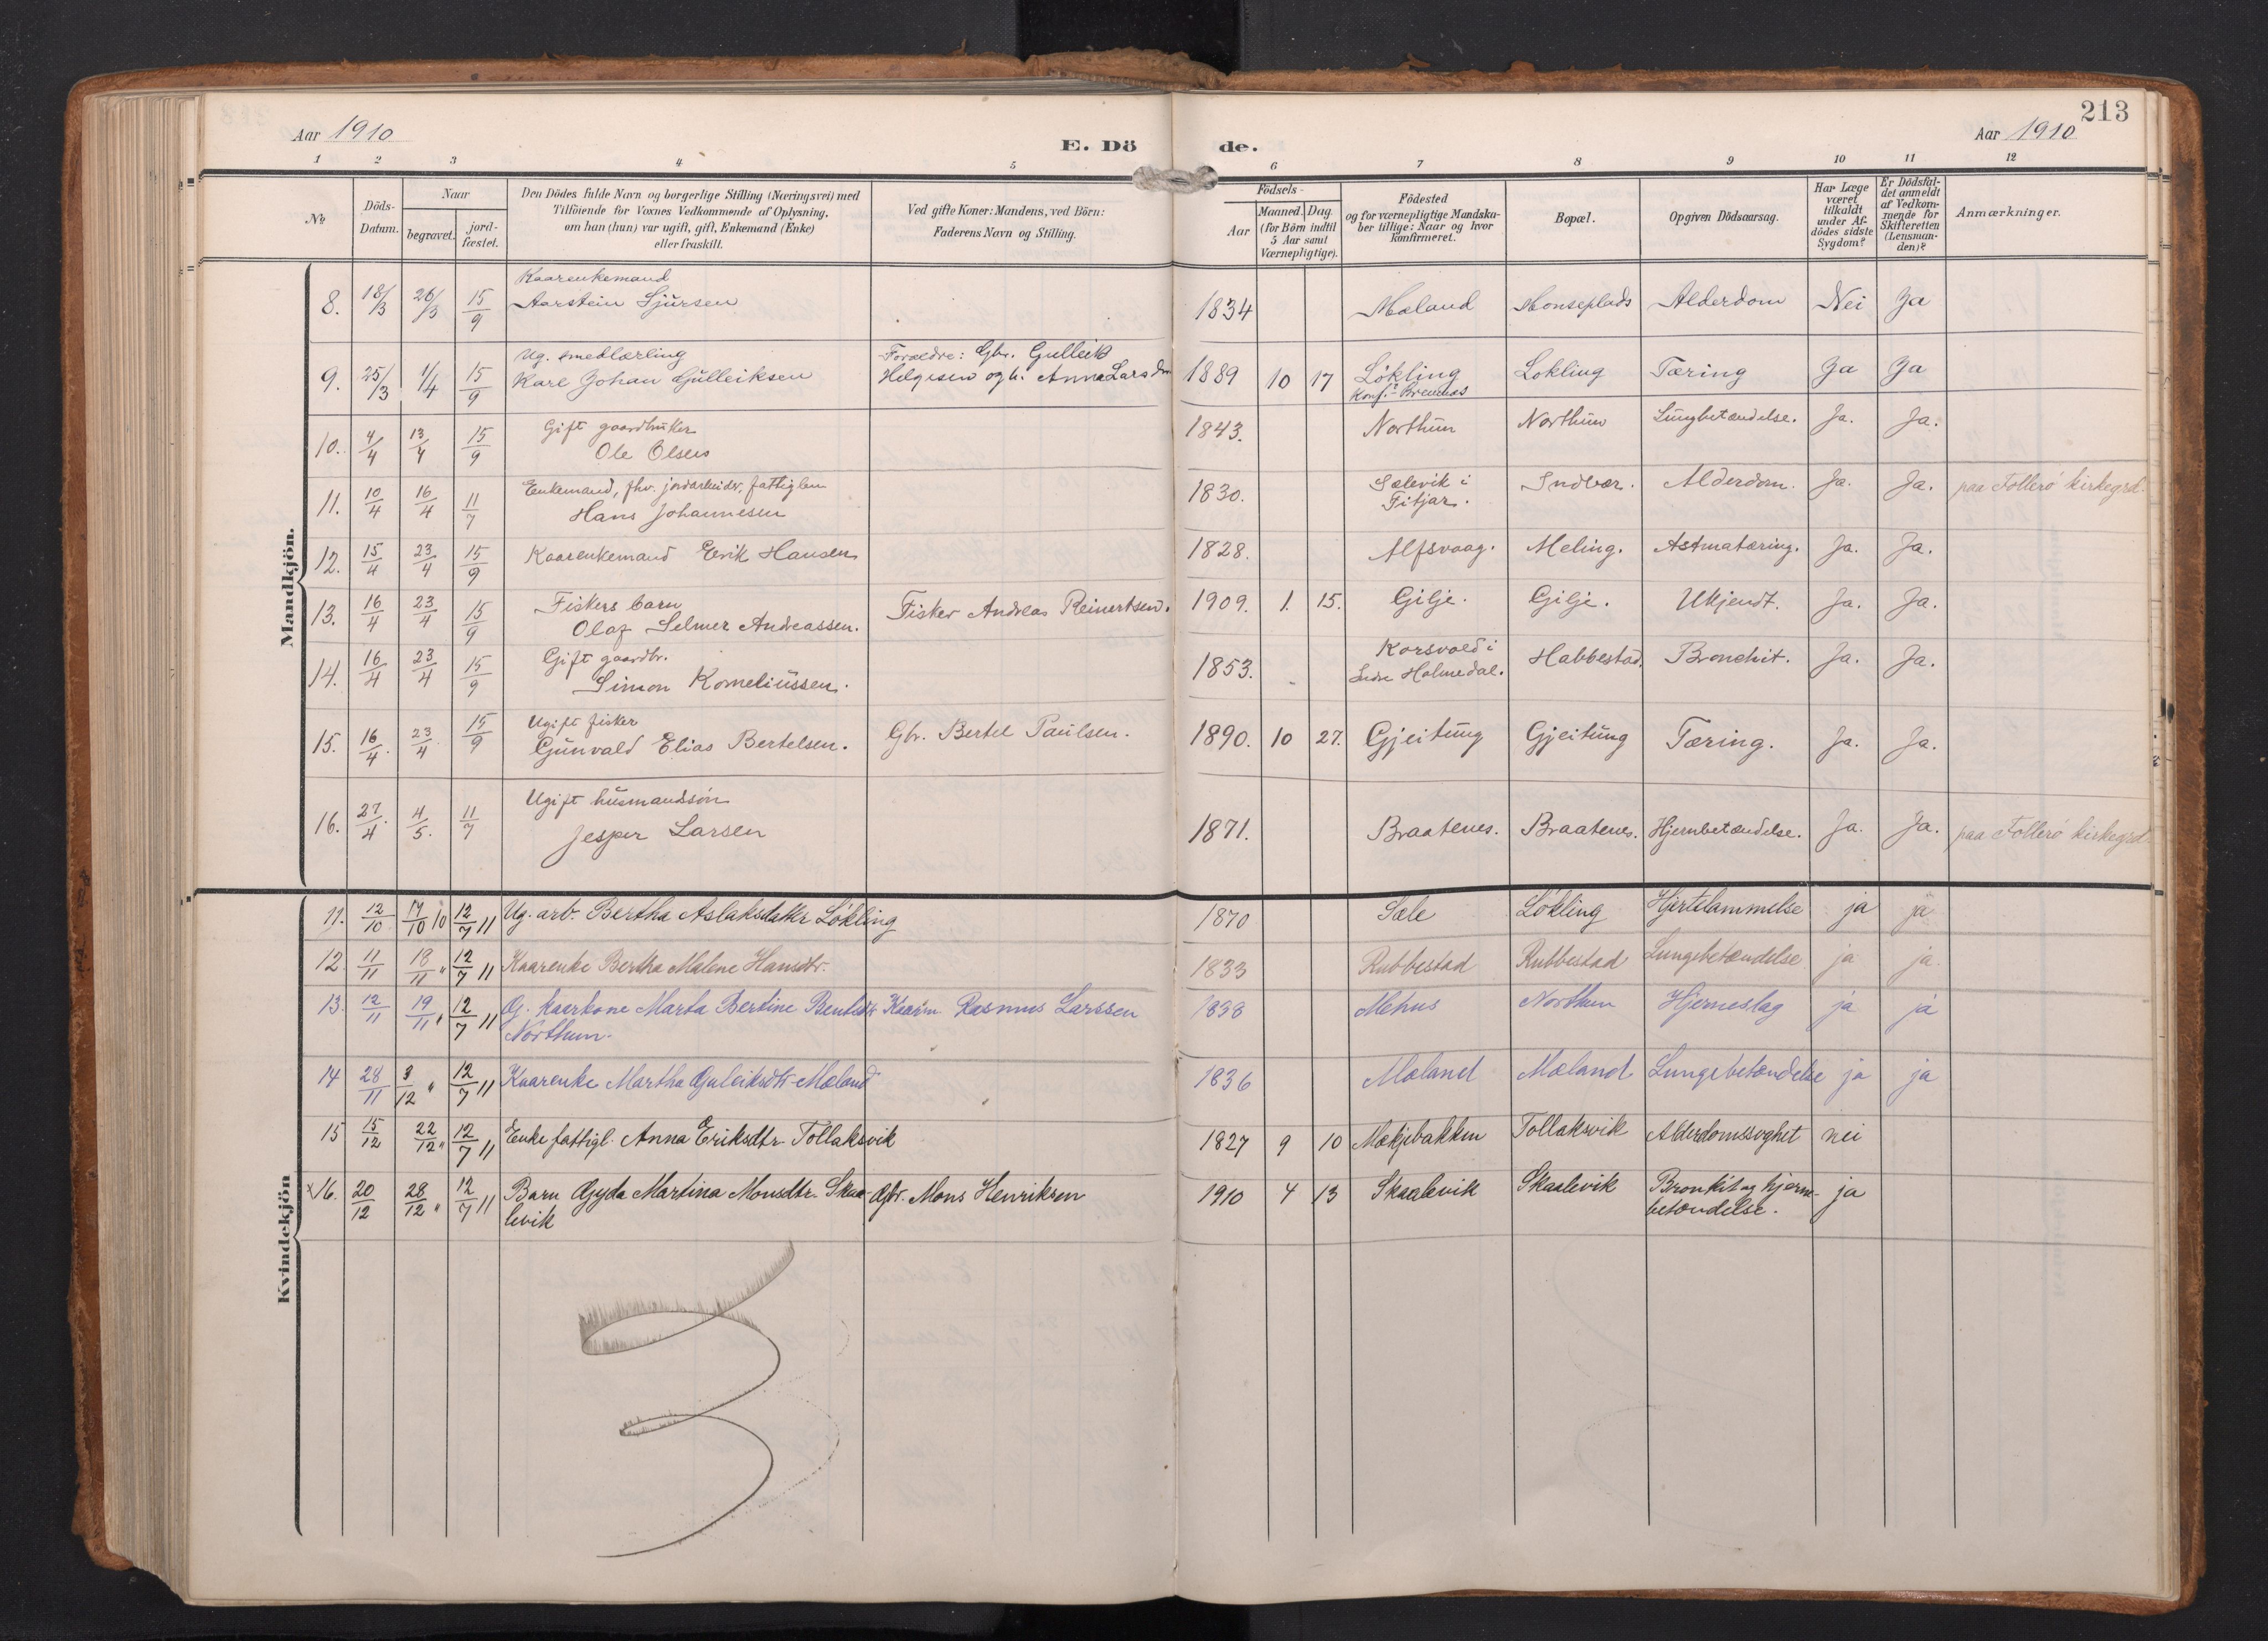 213
Aar 1910
E. Dö
de.
Aar 1910
1 2 3 4 5 6 7 8 9 10 11 12
№
Döds-
Datum.
Naar
begravet.
jord-
fæstet.
Den Dödes fulde Navn og borgerlige Stilling (Næringsvei) med
Tilföiende for Voxnes Vedkommende af Oplysning,
om han (hun) var ugift, gift, Enkemand (Enke)
eller fraskilt.
Ved gifte Koner: Mandens, ved Börn:
Faderens Navn og Stilling.
Födsels-
Aar
Maaned. Dag.
(for Börn indtil
5 Aar samt
Værnepligtige).
Födested
og for værnepligtige Mandska-
ber tillige: Naar og hvor
konfirmeret.
Bopæl.
Opgiven Dödsaarsag.
Har Læge
været
tilkaldt
under Af-
dödes sidste
Sygdom?
Er Dödsfal-
det anmeldt
af Vedkom-
mende for
Skifteretten
(Lensman-
den)?
Anmærkninger.
Mandkjön.
Kaarenkemand
8. 18/3 26/3 15/9 Aarstein Sjursen 1834 Mæland Monseplads Alderdom Nei Ja
Ug. smedlærling Forældre: Gbr. Gulleik
9. 25/3 1/4 15/9 Karl Johan Gulleiksen Helgesen og h. Anna Larsdtr 1889 10 17 Løkling Løkling Tæring Ja Ja
Konf. i Bremnes
Gift gaardbruker
10. 4/4 13/4 15/9 Ole Olsen 1843. Northun Northun Lungbetændelse. Ja. Ja.
Enkemand, fhv. jordarbeider, fattiglem Sælevik i
11. 10/4 16/4 11/7 Hans Johannesen 1830. Fitjar. Indvær. Alderdom. Ja. Ja. paa Follerø kirkegrd.
12. 15/4 23/4 15/9 Kaarenkemand Erik Hansen 1828. Alfsvaag. Meling. Astmatæring. Ja. Ja.
Fiskers barn
13. 16/4 23/4 15/9 Olaf Selmer Andreassen. Fisker Andreas Reinertsen. 1909. 1. 15. Gilje. Gilje. Ukjendt. Ja. Ja.
Gift gaardbr. Korsvold i
14. 16/4 23/4 15/9 Simon Korneliussen. 1853. Indre Holmedal. Habbestad. Bronchit. Ja. Ja.
Ugift fisker
15. 16/4. 23/4. 15/9 Gunvald Elias Bertelsen. Gbr. Bertel Paulsen. 1890. 10 27. Gjeitung Gjeitung Tæring. Ja. Ja.
Ugift husmandsøn
16. 27/4. 4/5. 11/7 Jesper Larsen 1871. Braatenes. Braatenes. Hjernbetændelse. Ja. Ja. paa Follerø kirkegrd.
Kvindekjön
11. 12/10 17/10 10 12/7 11 Ug. arb. Bertha Aslaksdatter Løkling 1870 Sæle Løkling Hjertelammelse ja ja
12 11/11 18/11 " 12/7 11 Kaarenke Bertha Malene Hansdtr. 1833 Rubbestad Rubbestad Lungebetændelse ja ja.
13. 12/11 19/11 " 12/7 11 G. kaarkone Marta Bertine Bentsdtr Kaarm. Rasmus Larssen 1838 Mehus Northun Hjerneslag ja ja
Northun.
14 28/11 3/12 " 12/7 11 Kaarenke Martha Guleiksdtr Mæland 1836 Mæland Mæland Lungebetændelse ja ja
15 15/12 22/12 " 12/7 11 Enke fattigl. Anna Eriksdtr Tollaksvik 1827 9 10 Mækjebakken Tollaksvik Alderdomssvghet nei
16. 20/12 28/12 " 12/7 11 Barn Gyda Martina Monsdtr. Skaa- Gbr. Mons Henriksen 1910 4 13 Skaalevik Skaalevik Bronkit og hjerne- ja
levik betændelse.